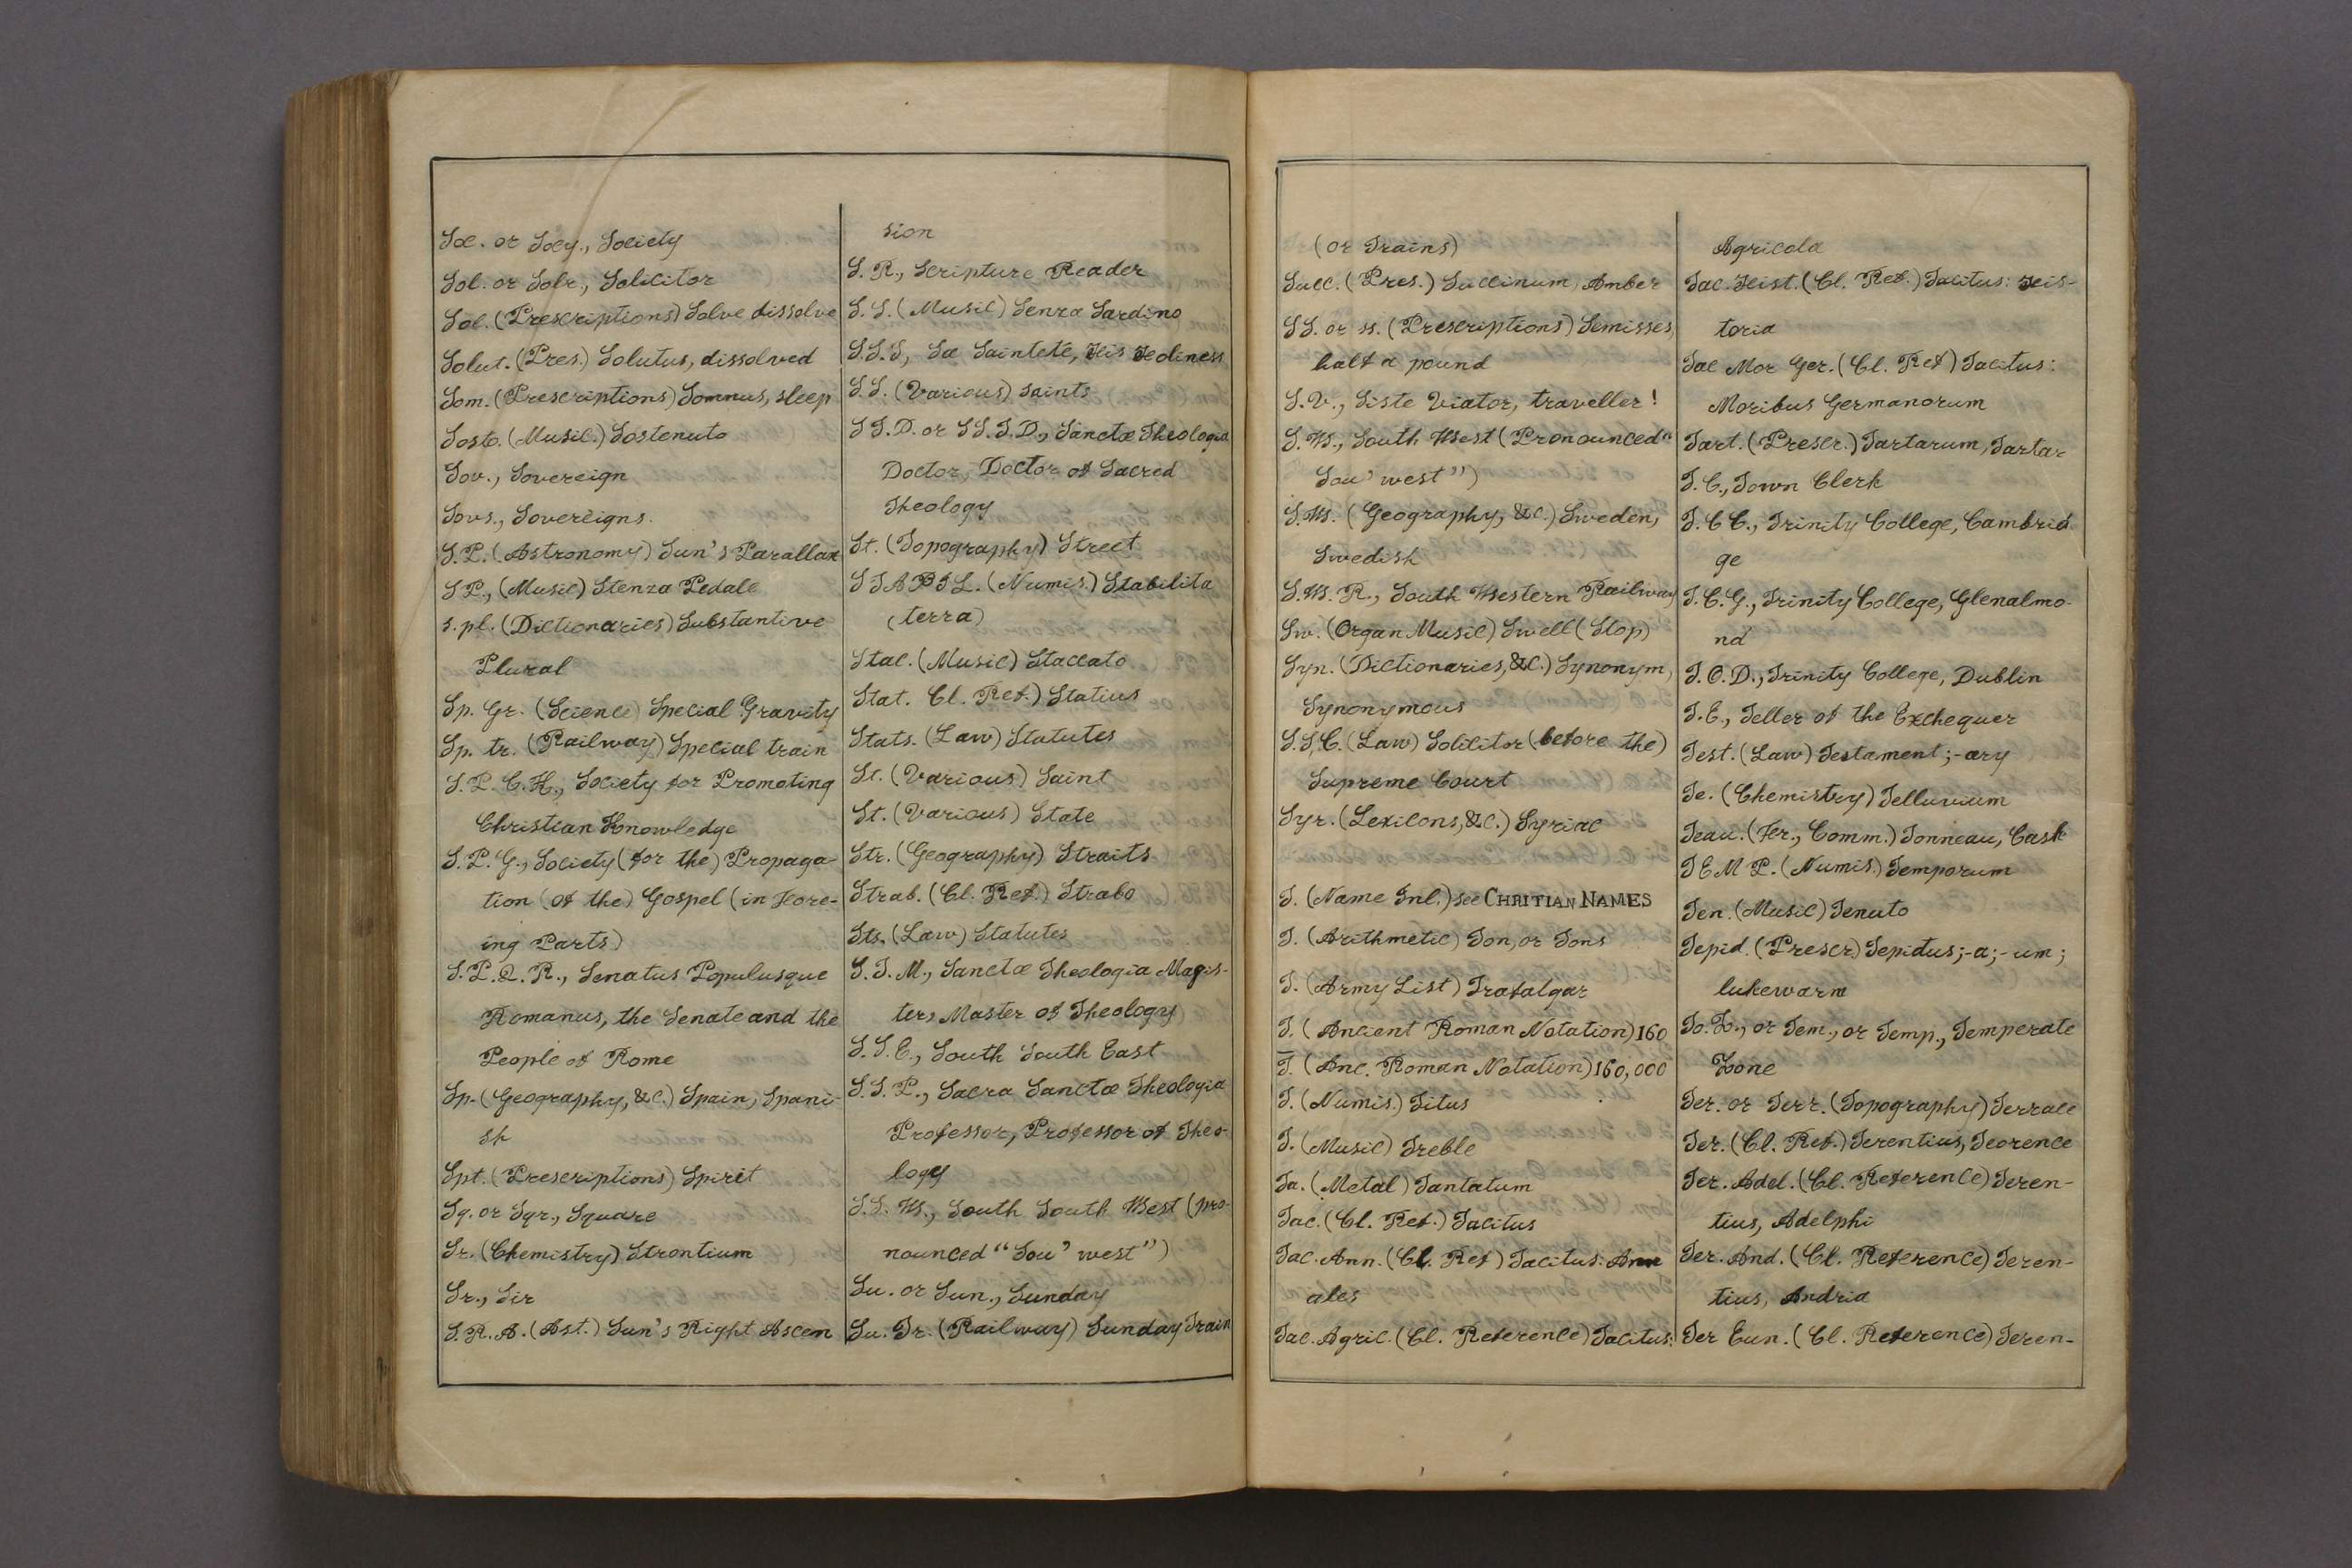 Soc. or Socy., Society
Sol. or Solr., Solicitor
Sol. (Prescriptions) Solve dissolve
Solut. (Pres.) Solutus, dissolved
Som. (Prescriptions) Somnus, sleep
Sosto. (Music.) Sostenuto
Sov., Sovereign
Sovs., Sovereigns.
S.P. (Astronomy) Sun's Parallax
S P., (Music) Stenza Pedale
s. pl. (Dictionaries) Substantive
Plural
Sp. Gr. (Science) Special Gravity
Sp. tr. (Railway) Special train
S.P.C.K., Society for Promoting
Christian Knowledge
S.P.G., Society (for the) Propaga-
tion (of the) Gospel (in Fore-
ing Parts)
S.P.Q.R., Senatus Populusque
Romanus, the Senate and the
People of Rome
Sp. (Geography, &c.) Spain, Spani-
sh
Spt. (Prescriptions) Spirit
Sq. or Sqr., Square
Sr. (Chemistry) Strontium
Sr., Sir
S.R.A. (Ast.) Sun's Right Ascen
sion
S.R., Scripture Reader
S.S. (Music) Senza Sardino
S.S.S, Sa Sainteté, His Holiness
S.S. (Various) Saints
S T.D. or S S.T.D., Sanctæ Theologia
Doctor, Doctor of Sacred
Theology
St. (Topography) Street
S T A B I L. (Numis.) Stabilita
(terra)
Stac. (Music) Staccato
Stat. Cl. Ref.) Statius
Stats. (Law) Statutes
St. (Various) Saint
St. (Various) State
Str. (Geography) Straits
Strab. (Cl. Ref.) Strabo
Sts. (Law) Statutes
S.T.M., Sanctæ Theologia Magis-
ters Master of Theology
S.S.E., South South East
S.S.P., Sacra Sanctæ Theologia
Professor, Professor of Theo-
logy
S.S.W., South South West (pro-
nounced "Sou' west")
Su. or Sun., Sunday
Su. Tr. (Railway) Sunday Train
(or Trains)
Succ. (Pres.) Succinum, Amber
SS. or ss. (Prescriptions) Semisses,
half a pound
S.V., Siste Viator, traveller!
S.W., South West (Pronounced "
Sou' west")
S.W. (Geography, &c.) Sweden,
Swedish
S.W.R., South Western Railway
Sw. (Organ Music) Swell (Stop)
Syn. (Dictionaries, &c.) Synonym,
Synonymous
S.S,C. (Law) Solicitor (before the)
Supreme Court
Syr. (Lexicons, &c.) Syriac
T. (Name Inl.) see CHRITIAN NAMES
T. (Arithmetic) Ton, or Tons
T. (Army List) Trafalgar
T. (Ancient Roman Notation) 160
T̅. (Anc. Roman Notation) 160,000
T. (Numis.) Titus
T. (Music) Treble
Ta. (Metal) Tantatum
Tac. (Cl. Ref.) Tacitus
Tac. Ann. (Cl. Ref) Tacitus: Ann
ales
Tac. Agric. (Cl. Reference) Tacitus:
Agricola
Tac. Hist. (Cl. Ref.) Tacitus: His-
toria
Tac Mor Ger. (Cl. Ref) Tacitus:
Moribus Germanorum
Tart. (Prescr.) Tartarum, Tartar
T.C., Town Clerk
T.C C., Trinity College, Cambrid
ge
T.C.G., Trinity College, Glenalmo-
nd
T.C.D., Trinity College, Dublin
T.E., Teller of the Exchequer
Test. (Law) Testament; -ary
Te. (Chemistry) Telluvium
Teau. (Fer., Comm.) Tonneau, Cask
T E M P. (Numis.) Temporum
Ten. (Music) Tenuto
Tepid. (Prescr.) Tepidus; -a; -um;
lukewarm
To. Z., or Tem., or Temp., Temperate
Zone
Ter. or Terr. (Topography) Terrace
Ter. (Cl. Ref.) Terentius, Teorence
Ter. Adel. (Cl. Reference) Teren-
tius, Adelphi
Ter. And. (Cl. Reference) Teren-
tius, Andria
Ter Eun. (Cl. Reference) Teren-